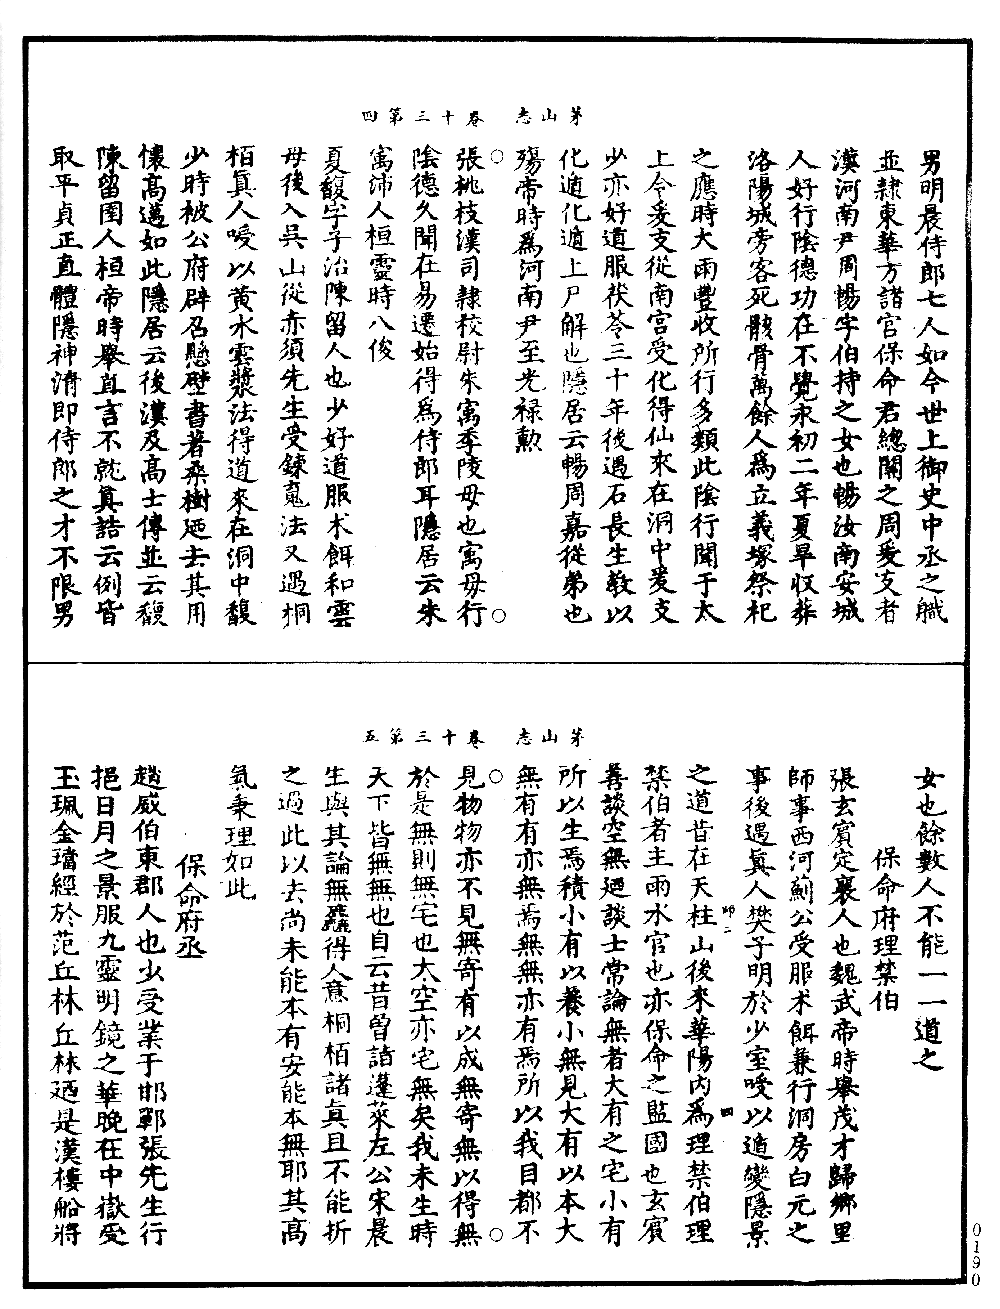 茅山志 卷十三第四
男明晨侍郎七人如今世上御史中丞之軄
並隷東華方諸官保命君緫關之周爰支者
漢河南尹周暢字伯持之女也暢汝南安城
人好行隂德功在不覺永初二年夏旱収葬
洛陽城旁客死骸骨萬餘人爲立義塚祭祀
之應時大雨豐收所行多類此隂行聞于太
上令爰支從南宮受化得仙來在洞中爰支
少亦好道服茯苓三十年後遇石長生教以
化遁化遁上尸解也隱居云暢周嘉從弟也
殤帝時爲河南尹至光禄勲
張桃枝漢司隷校尉朱寓季陵母也寓母行
隂德久聞在易遷始得爲侍郎耳隱居云朱
寓沛人桓靈時八俊
夏馥字子治陳留人也少好道服术餌和雲
母後入吳山從赤須先生受鍊䰟法又遇桐
栢眞人唆以黄水雲漿法得道來在洞中馥
少時被公府辟召懸壁書著桒樹廼去其用
懷高邁如此隱居云後漢及高士傳並云馥
陳留圉人桓帝時舉直言不就眞誥云例皆
取平貞正直體隱神清即侍郎之才不限男
茅山志 卷十三第五
女也餘數人不能一一道之
保命府理禁伯
張玄賓定襄人也魏武帝時舉茂才歸鄉里
師事西河薊公受服术餌兼行洞房白元之
事後遇眞人樊子明於少室唆以遁變隱景
之道昔在天柱山後來華陽内爲理禁伯理
禁伯者主雨水官也亦保命之監國也玄賓
善談空無廼談士常論無者大有之宅小有
所以生焉積小有以養小無見大有以本大
無有有亦無焉無無亦有焉所以我目都不
見物物亦不見無寄有以成無寄無以得無
於是無則無宅也太空亦宅無矣我未生時
天下皆無無也自云昔曽詣蓬萊左公宋晨
生與其論無麤得人意桐栢諸眞且不能折
之過此以去尚未能本有安能本無耶其高
氣秉理如此
保命府丞
趙威伯東郡人也少受業于邯鄲張先生行
挹日月之景服九靈明鏡之華晚在中嶽受
玉珮金璫經於范丘林丘林廼是漢樓船將
卭二
四
0190